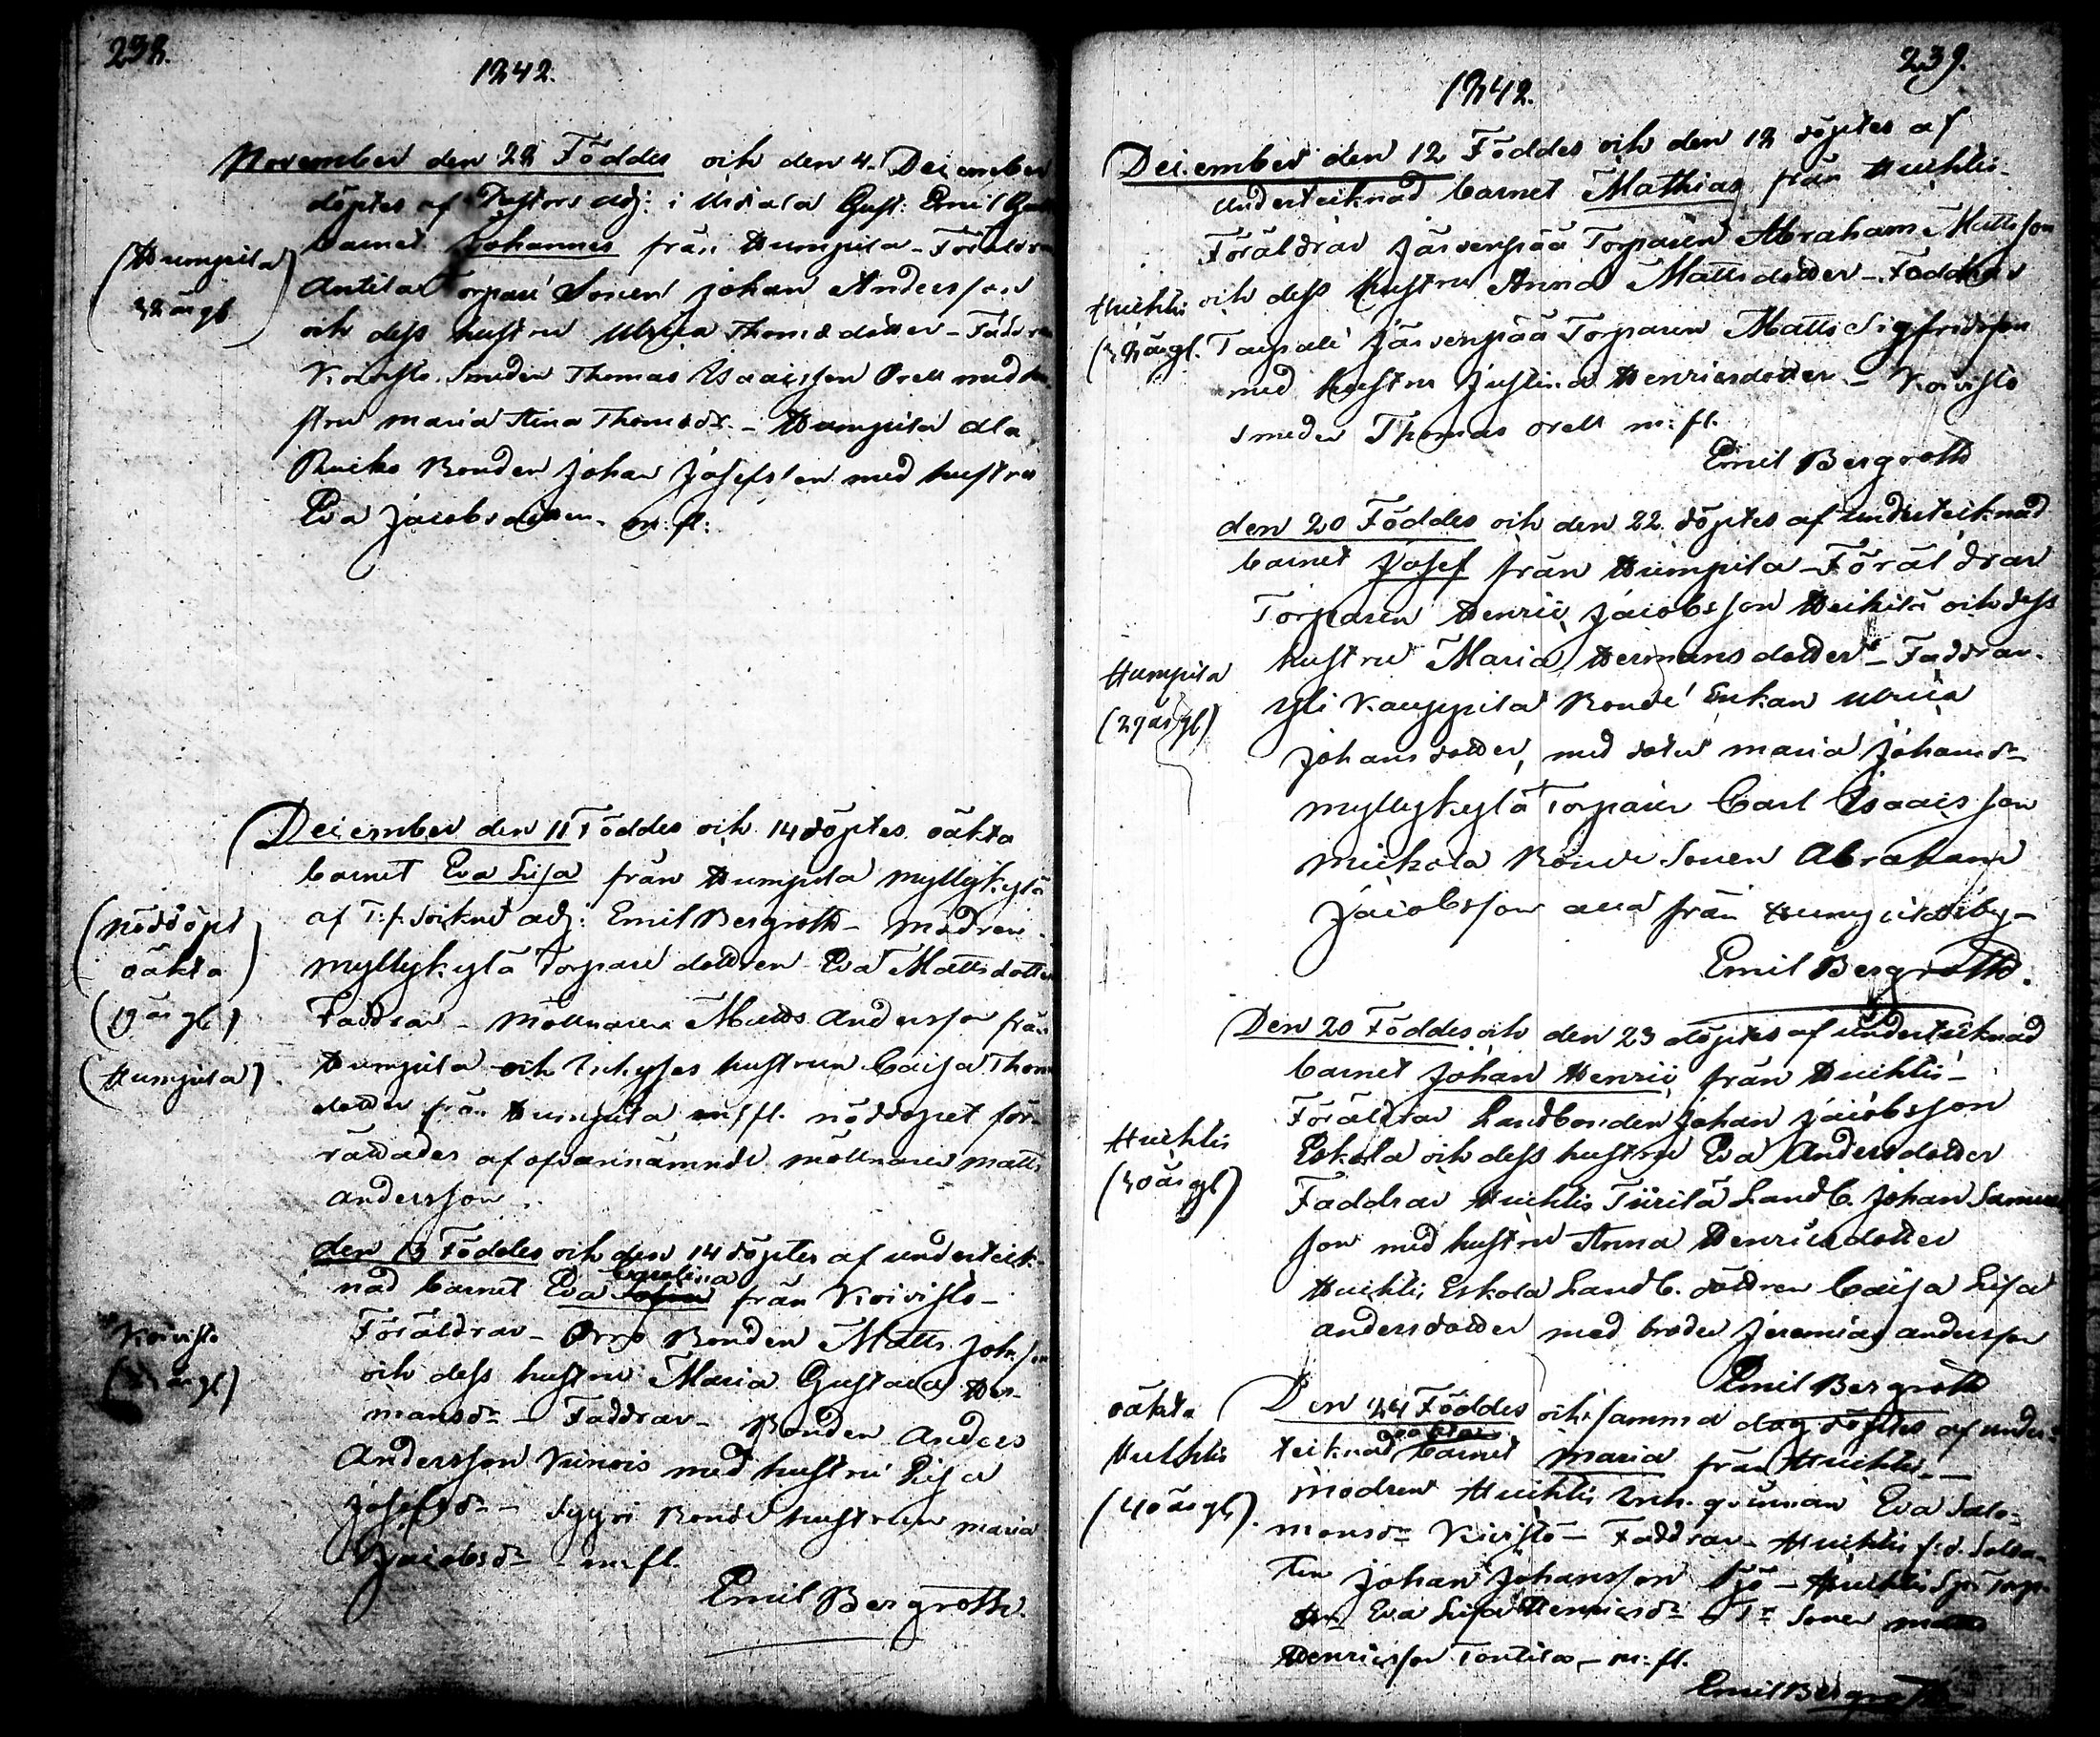 238.
1842.
November den 28 Föddes och den 4. December
döptes af Pastors adj: i Urdala Gust: Emil
barnet Johannes från Humpila - Föräldrar
(Humpila)
32 år gl
Antila Torpare Sonen Johan Andersson
och dess hustru Ulrica Thomædotter - Faddrar
Koivisto Smeden Thomas Isaacsson Orell med hu
stru Maria Stina Thomædr. - Humpila ala
Ruiko Bonden Johan Josefsson med hustru
Eva Jacobsdotter. m: fl:
December den 11 Föddes och 14 döptes oäkta
barnet Eva Lisa från Humpila Myllykylä
af T:f. Sockne adj: Emil Bergroth - Modren
(Nöddöpt
oäkta)
Myllykylä Torpare dottren Eva Mattsdotter
(19 år gl)
Faddrar - Möllnaren Matts Andersson från
(Humpila)
Humpila och Inhyses hustrun Caisa Thom
dotter från Humpila m fl. nöddopet för-
rättades af ofvannämnde möllnare Matts
Andersson.
den 13 Föddes och den 14 döptes af underteck-
Carolina
nad barnet Eva från Koivisto -
Koivisto
Föräldrar - Orro Bonden Matts Johnsson
år gl)
och dess hustru Maria Gustava Her-
mansdr - Faddrar - Bonden Anders
Andersson Kinois med hustru Lisa
Josefsdr - Syyri Bonde hustrun Maria
Jacobsdr - m: fl.
Emil Bergroth.
239.
1842.
December den 12 Föddes och den 18 döptes af
undertecknad barnet Mathias från Huhtis
Föräldrar Järvenpää Torparen Abraham Mattsson
Huhtis
och dess hustru Anna Mattsdotter - Faddrar
(38 år gl.
Taipale Järvenpää Torparen Matts Sigfridsson
med hustru Justina Henricsdotter - Koivisto
Smeden Thomas Orell m: fl.
Emil Bergroth
den 20 Föddes och den 22 döptes af undertecknad
barnet Josef från Humpila - Föräldrar
Torparen Henric Jacobsson Heikilä och dess
Humpila
hustru Maria Hermansdotter - Faddrar.
(29 år gl)
Yli Kauppila Bonde Enkan Ulrica
Johansdotter, med dotter Maria Johansdr
Myllykylä Torparen Carl Isaacsson
Mickola Bonde Sonen Abraham
Jacobsson alla från Humpila by -
Emil Bergroth.
Den 20 Föddes och den 23 döptes af undertecknad
barnet Johan Henric från Huhtis -
Huhtis
Föräldrar Landbonden Johan Jacobsson
(30 år gl)
Eskola och dess hustru Eva Andersdotter
Faddrar Huhtis Tiirilä Landb. Johan Samuel
son med hustru Anna Henricsdotter
Huhtis Eskola Landb. dottren Caisa Lisa
Andersdotter med broder Jeremias Andersson
Emil Bergroth
oäkta
Den 24 Föddes och samma dag döptes af under-
oäkta
Huhtis
tecknad barnet Maria från Huhtis -
(40 år gl).
Modren Huhtis Inh. qvinnan Eva Salo-
monsdr Kivistö - Faddrar - Huhtis f:d. Solda-
ten Johan Johansson Sjö - Huhtis Torp.
Eva Lisa Henricsdr Sonen Matts
Henricsson Tontila - m: fl.
Emil Bergroth